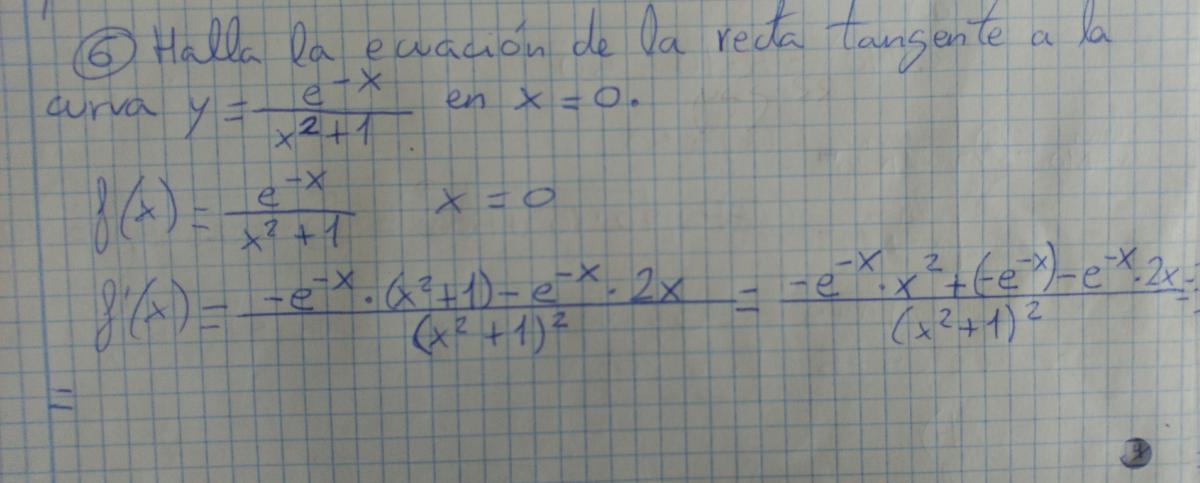 ⑥ Halla la ecuación de la recta tangente a la
curva y = e^-x / x²+1 en x = 0.
f(x) = e^-x / x²+1    x = 0
f'(x) = -e^-x · (x²+1) - e^-x · 2x / (x²+1)² = -e^-x · x² + (-e^-x) - e^-x · 2x / (x²+1)² =
=